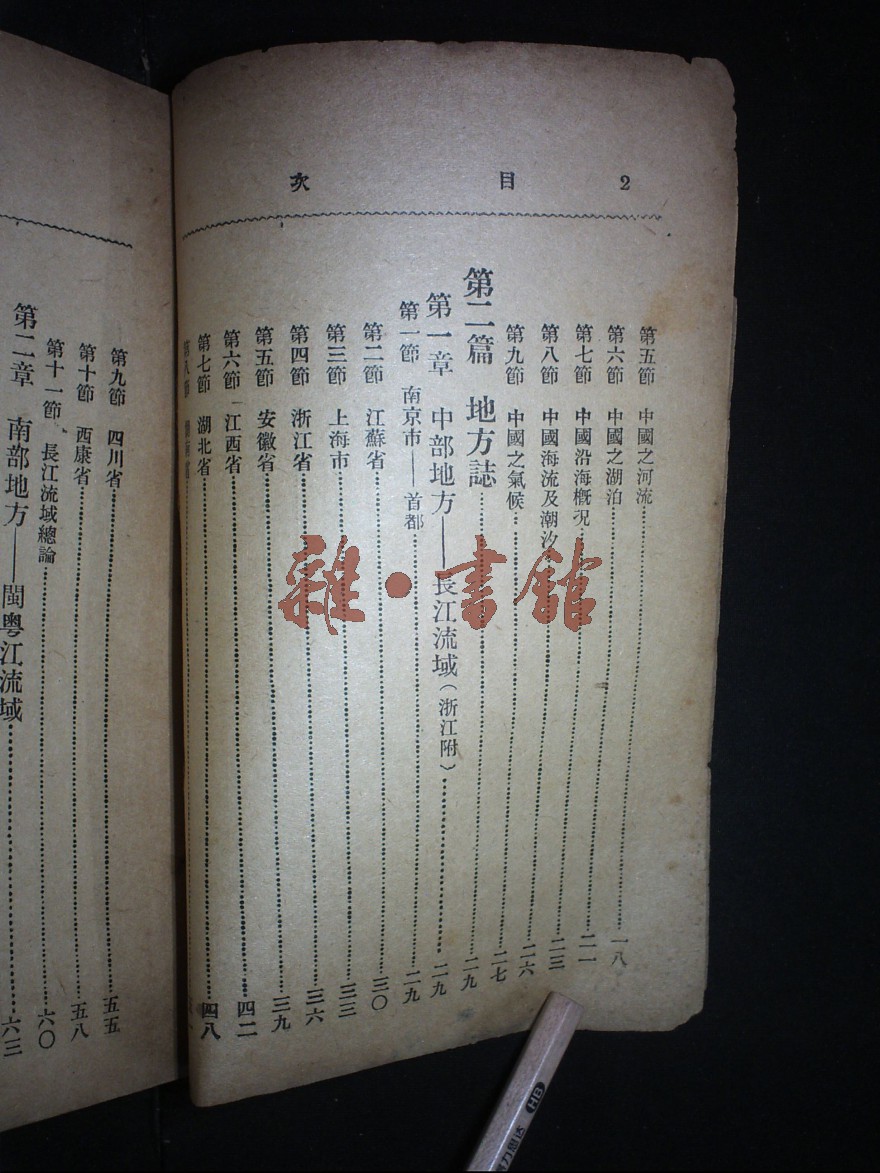 2 目 次
第五節 中國之河流……一八
第六節 中國之湖泊……二一
第七節 中國沿海概況……二三
第八節 中國海流及潮汐……二六
第九節 中國之氣候……二七
第二篇 地方誌……二九
第一章 中部地方——長江流域(浙江附)……二九
第一節 南京市——首都……二九
第二節 江蘇省……三〇
第三節 上海市……三三
第四節 浙江省……三六
第五節 安徽省……三九
第六節 江西省……四二
第七節 湖北省……四八
第八節
第九節 四川省……五五
第十節 西康省……五八
第十一節 長江流域總論……六〇
第二章 南部地方——閩粵江流域……六三
雜·書館
HB